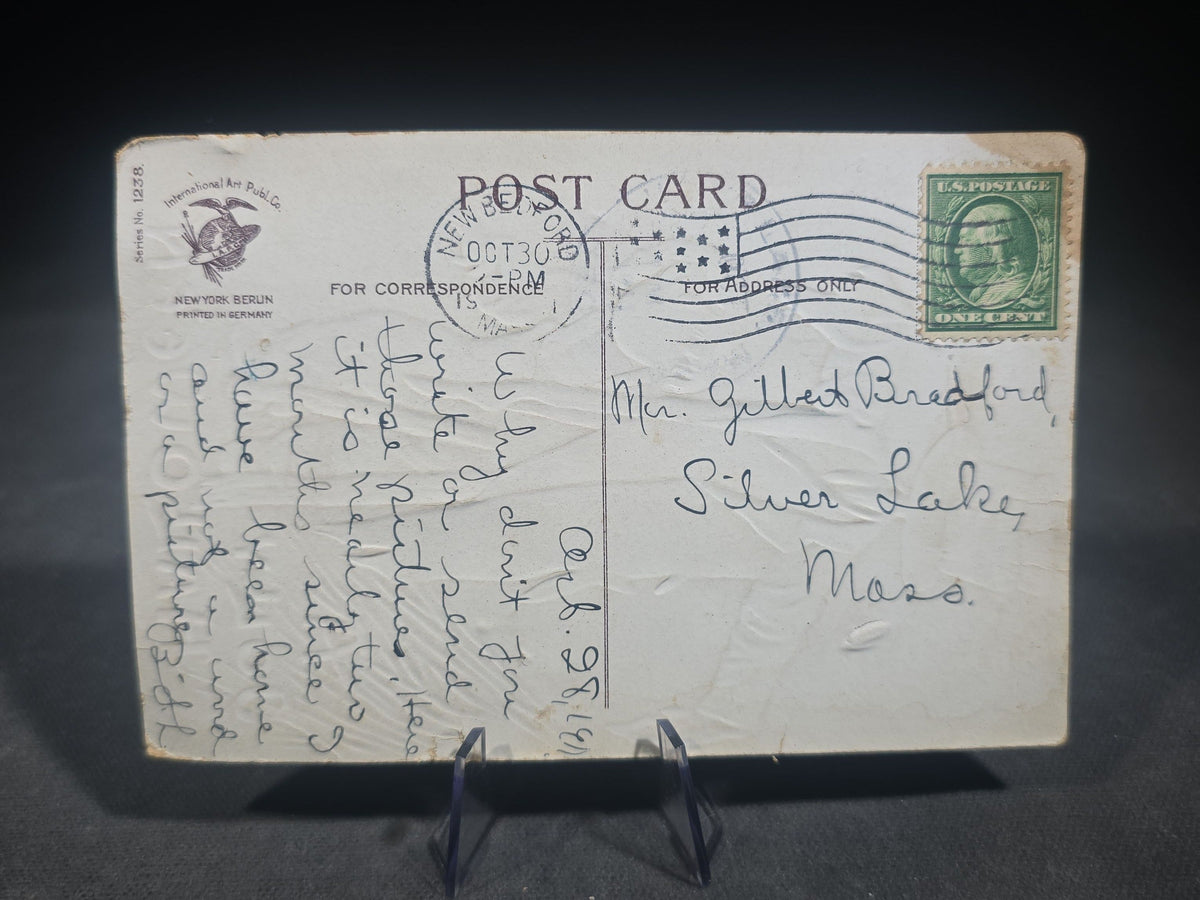 Series No. 1238.
International Art Publ. Co.
NEW YORK BERLIN
PRINTED IN GERMANY
POST CARD
NEW BEDFORD
OCT 30
PM
MASS
FOR CORRESPONDENCE
FOR ADDRESS ONLY
U.S. POSTAGE
ONE CENT
Mr. Gilbert Bradford,
Silver Lake,
Mass.
28,
Why don't you
write or send
those pictures, Here
it is nearly two
months since I
have been home
and not a word
or a picture